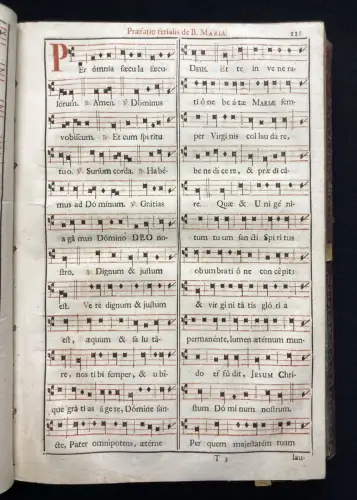 Præfatio ferialis de B. MARIA.
PEr ómnia sæcula sæcu-
lórum. ℟. Amen. ℣. Dóminus
vobíscum. ℟. Et cum spíritu
tuo. ℣. Sursum corda. ℟. Habé-
mus ad Dóminum. ℣. Grátias
agámus Dómino DEO no-
stro. ℟. Dignum & justum
est. Verè dignum & justum
est, æquum & salutá-
re, nos tibi semper, & ubi-
que grátias ágere, Dómine san-
cte, Pater omnípotens, ætérne
DEUS. Et te in venera-
tióne beátæ MARIÆ sem-
per Vírginis collaudáre,
benedícere, & prædicá-
re. Quæ & Unigéni-
tum tuum sancti Spíritus
obumbratióne concépit:
& virginitátis glória
permanénte, lumen ætérnum mun-
do effúdit, JESUM Chri-
stum Dóminum nostrum.
Per quem majestátem tuam
T 3 lau-